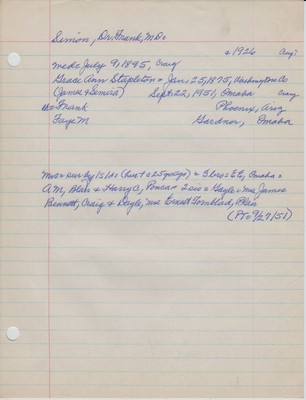 Simon, Dr. Frank, M.D.
d 1926 Aug?
md. July 9, 1895, Craig
Grace Ann Stapleton b Jan. 25, 1875, Washington Co
(James & Semira) Sept. 22, 1951, Omaha Craig
Frank Phoenix, Ariz
Faye M Gardner, Omaha
Mrs. sur by 1 s 1 dr (hus d 25 yrs ago) & 3 bros Ed, Omaha &
A M, Blair & Harry A, Ponca & 2 sis & Gayle & mrs James
Bennett, Craig & Dayle, mrs Ernest Tornblad, Blair
(Pt. 9/27/51)